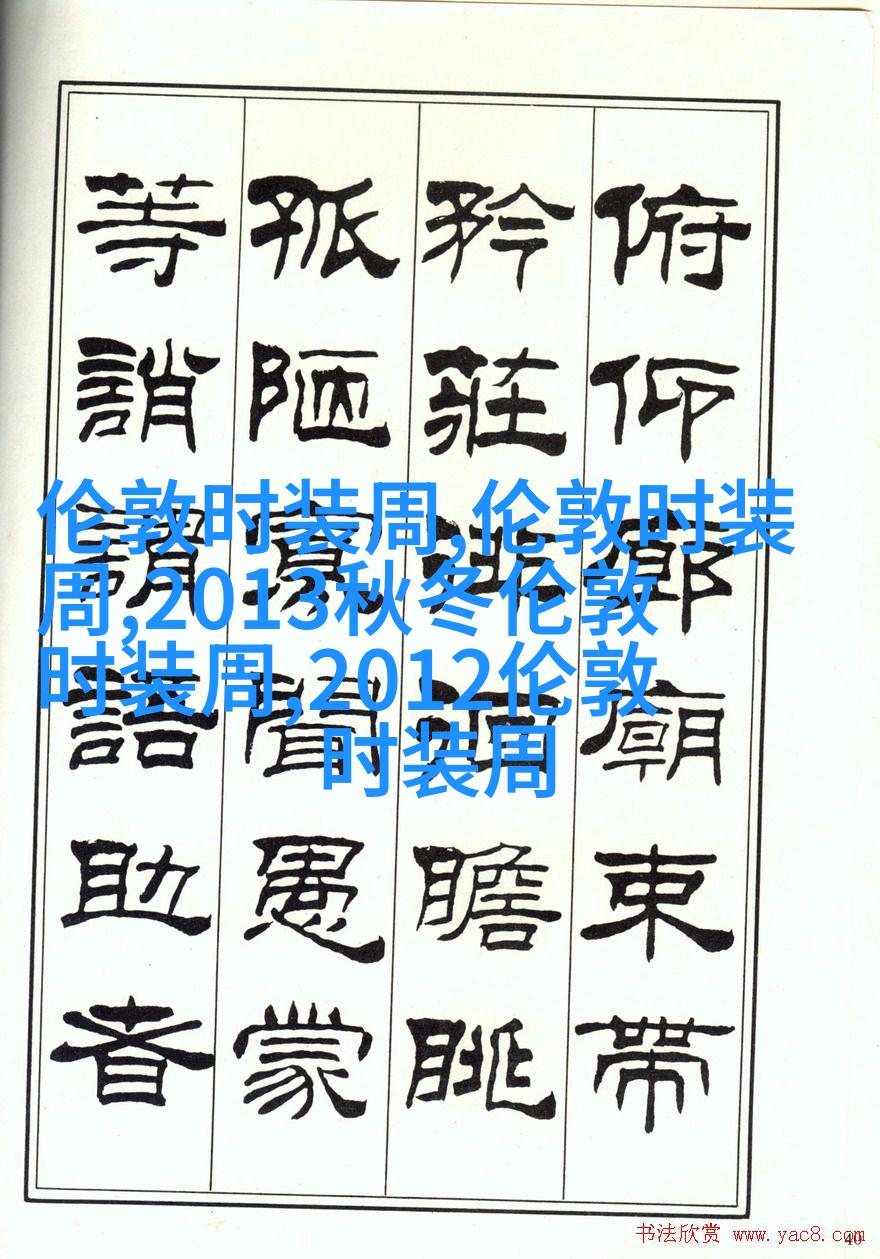 俯仰廊廟束帶
矜莊徘徊瞻眺
孤陋寡聞愚蒙
等誚謂語助者
伦敦时装周,伦敦时装
周,2013秋冬伦敦
时装周,2012伦敦
时装周
书法欣赏 www.yac8.com
40